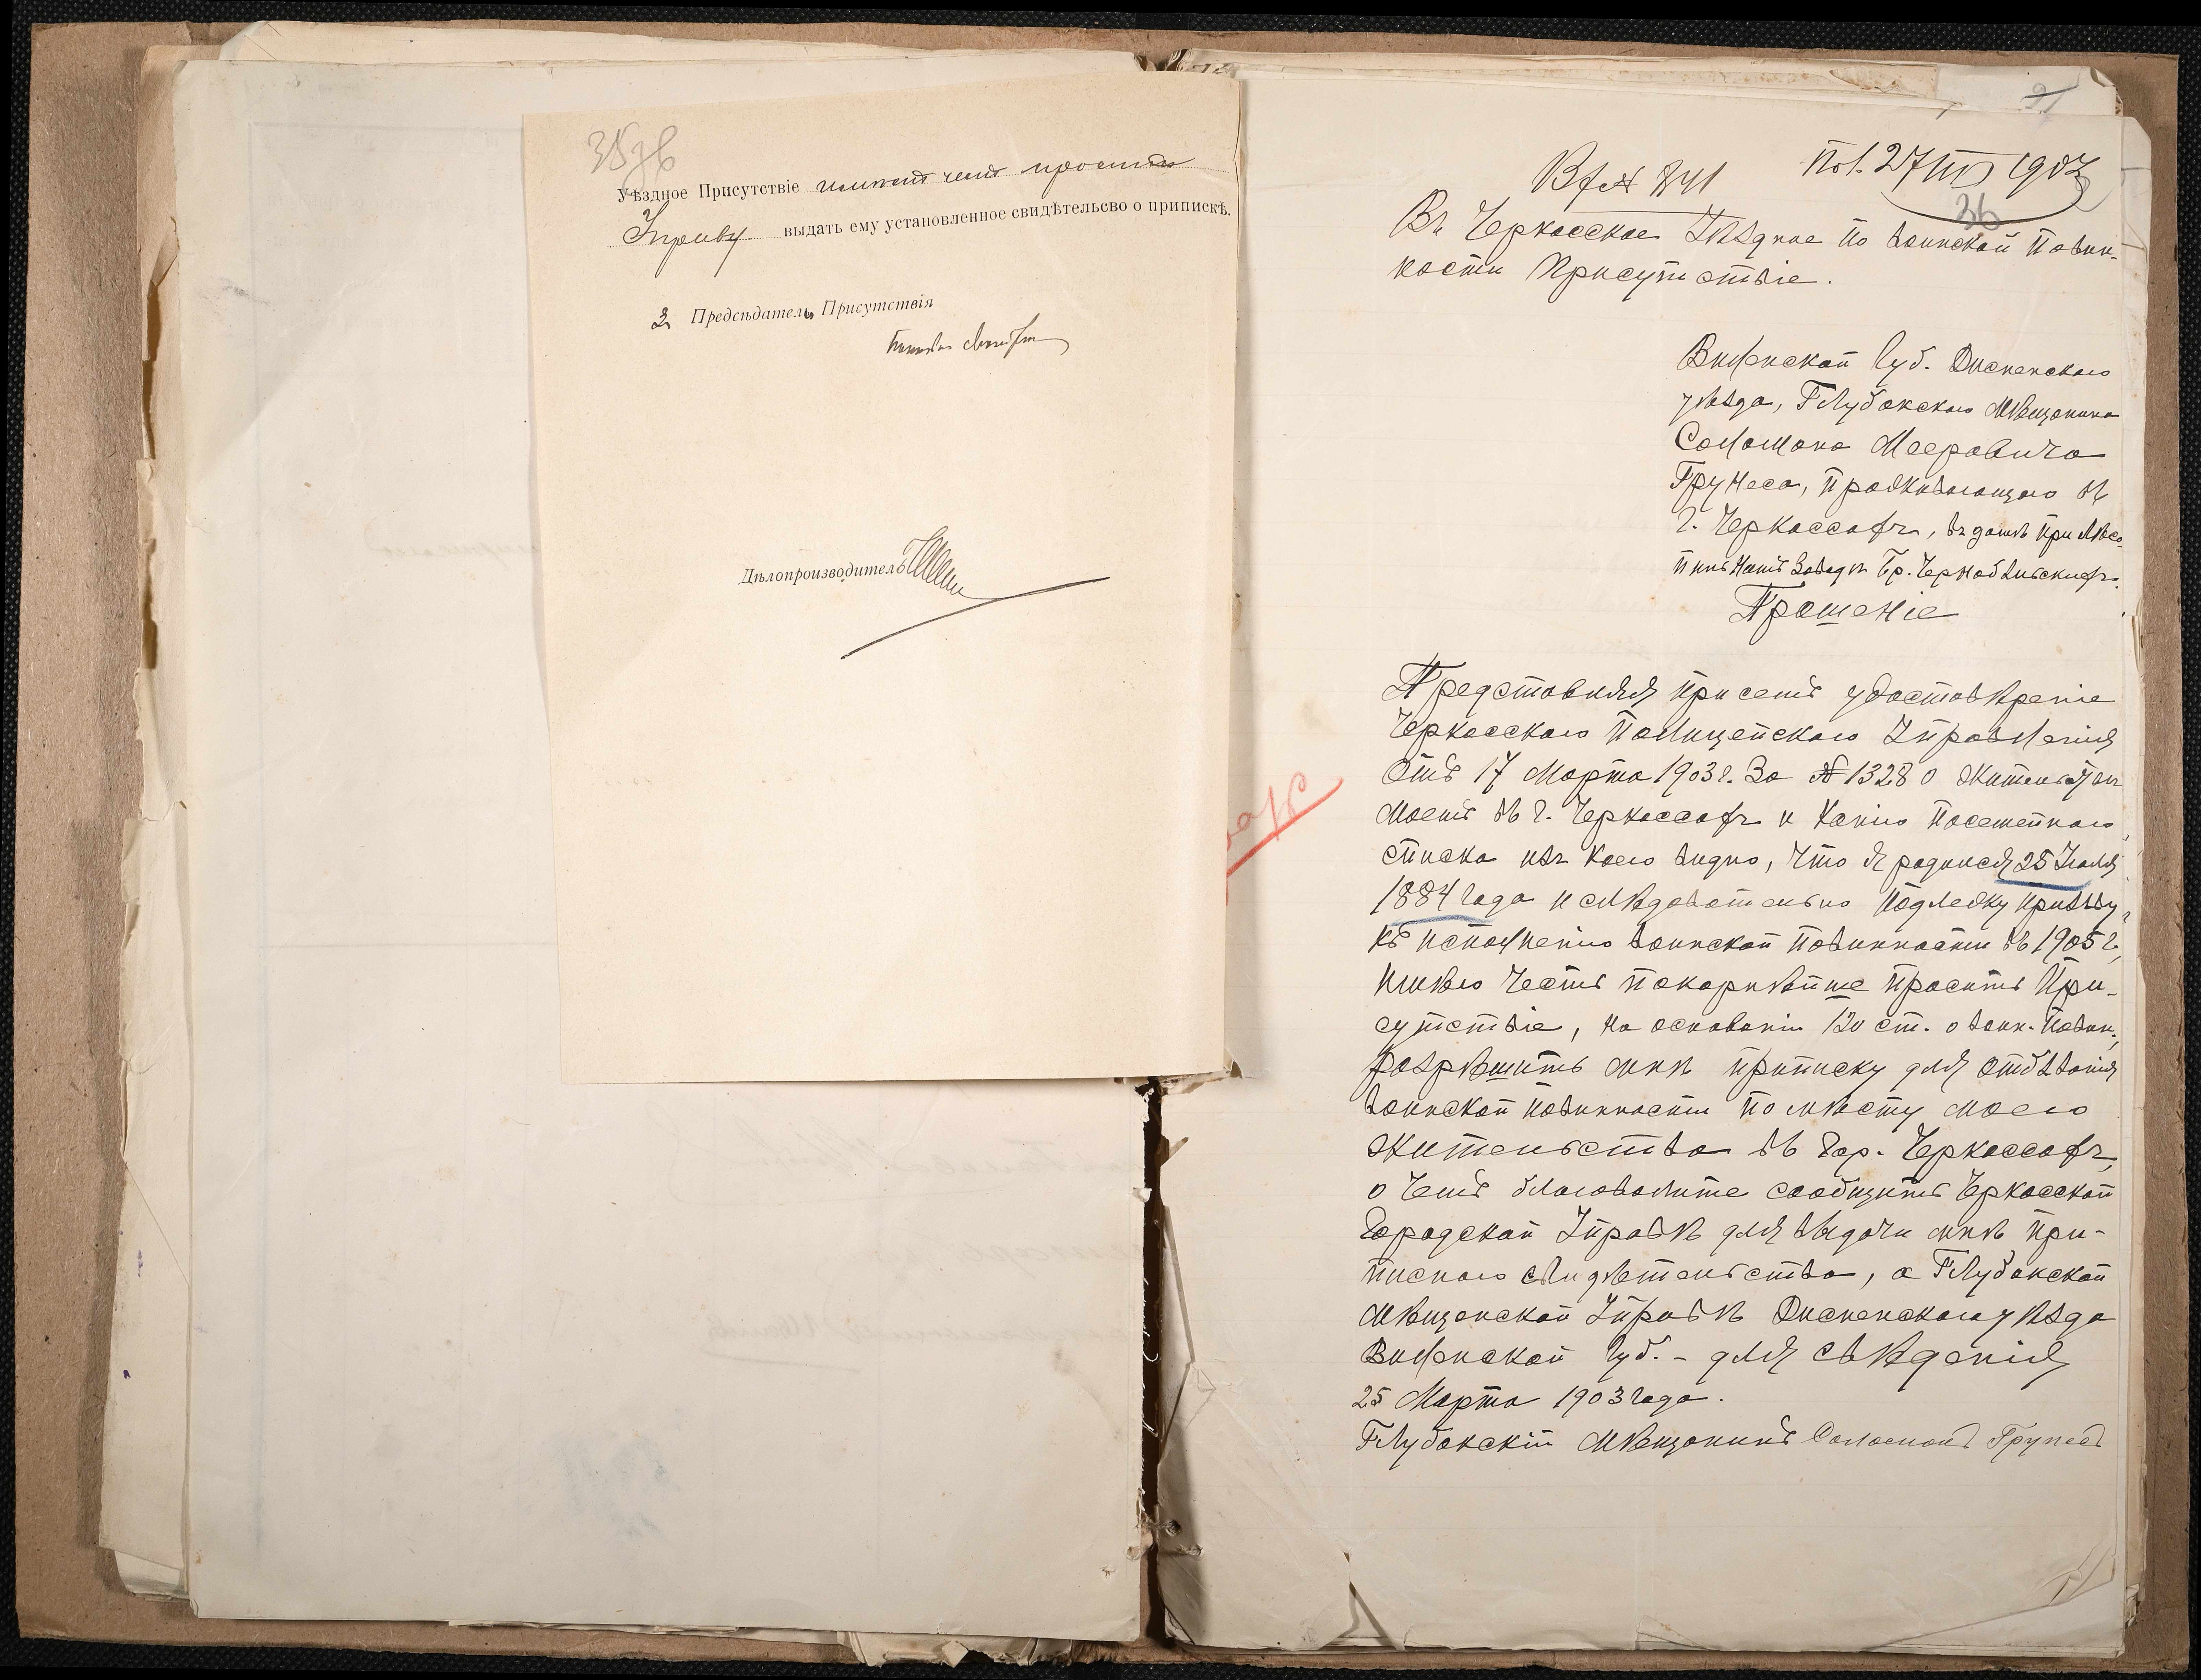 Уѣздное Присутствіе имѣетъ честь проситъ
Управу выдать ему установленное свидѣтельсво о припискѣ.
Предсѣдатель Присутствія
Дѣлопроизводитель
Вх № 841
Пол. 27/III 1903
36
Въ Черкасское Уѣздное по воинской повин-
ности Присутствіе.
Виленской губ. Дисненскаго
уѣзда, Глубокскаго мѣщанина
Соломона Мееровича
Грунеса, проживающаго въ
г. Черкассахъ, въ домѣ при лѣсо-
пильномъ заводѣ Бр. Чернобыльскихъ.
Прошеніе
Представляя при семъ удостовѣреніе
Черкасскаго Полицейскаго Управленія
отъ 17 Марта 1903 г. за № 1328 о жительствѣ
моемъ въ г. Черкассахъ и копію посемейнаго
списка изъ коего видно, что я родился 25 Іюля
1884 года и слѣдовательно подлежу призыву
къ исполненію воинской повинности въ 1905 г.,
имѣю честь покорнѣйше просить При-
сутствіе, на основаніи 120 ст. о воин. повин.,
разрѣшить мнѣ приписку для отбыванія
воинской повинности по мѣсту моего
жительства въ гор. Черкассахъ,
о чемъ благоволите сообщить Черкасской
Городской Управѣ для выдачи мнѣ при-
писного свидѣтельства, а Глубокской
мѣщанской Управѣ Дисненскаго уѣзда
Виленской губ. - для свѣденія
25 Марта 1903 года.
Глубокскій мѣщанинъ Соломонъ Грунесъ